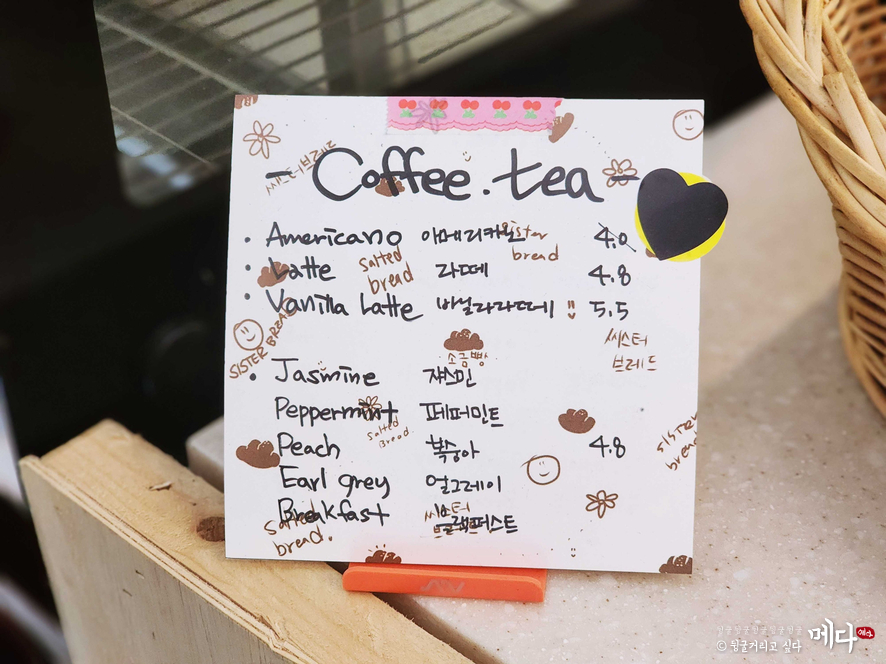 - Coffee . tea -
씨스터브레드
· Americano 아메리카노 4.0
Sister bread
· Latte 라떼 4.8
Salted bread
· Vanilla Latte 바닐라라떼 5.5
씨스터
브레드
SISTER BREAD
소금빵
· Jasmine 쟈스민
Peppermint 페퍼민트
Salted Bread
Peach 복숭아 4.8
SISTER bread
Earl grey 얼그레이
Breakfast 블랙퍼스트
Salted bread.
씨스터
뒹굴거리고 싶다
메다